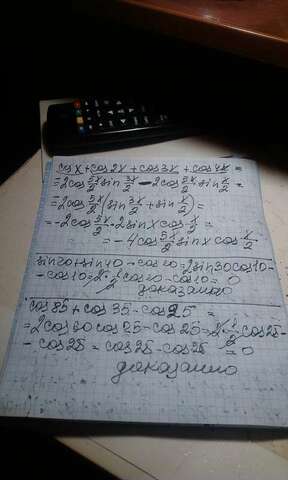 cos x + cos 2x + cos 3x + cos 4x =
= 2cos 5x/2 sin 3x/2 - 2cos 5x/2 sin x/2 =
= 2cos 5x/2 (sin 3x/2 + sin x/2) =
= -2cos 5x/2 · 2sin x cos x/2 =
= -4cos 5x/2 sin x cos x/2
sin 20 + sin 40 - cos 10 = 2sin 30 cos 10 -
- cos 10 = 2 · 1/2 cos 10 - cos 10 = 0
доказанно
cos 85 + cos 35 - cos 25 =
= 2cos 60 cos 25 - cos 25 = 2 · 1/2 cos 25 -
- cos 25 = cos 25 - cos 25 = 0
доказанно